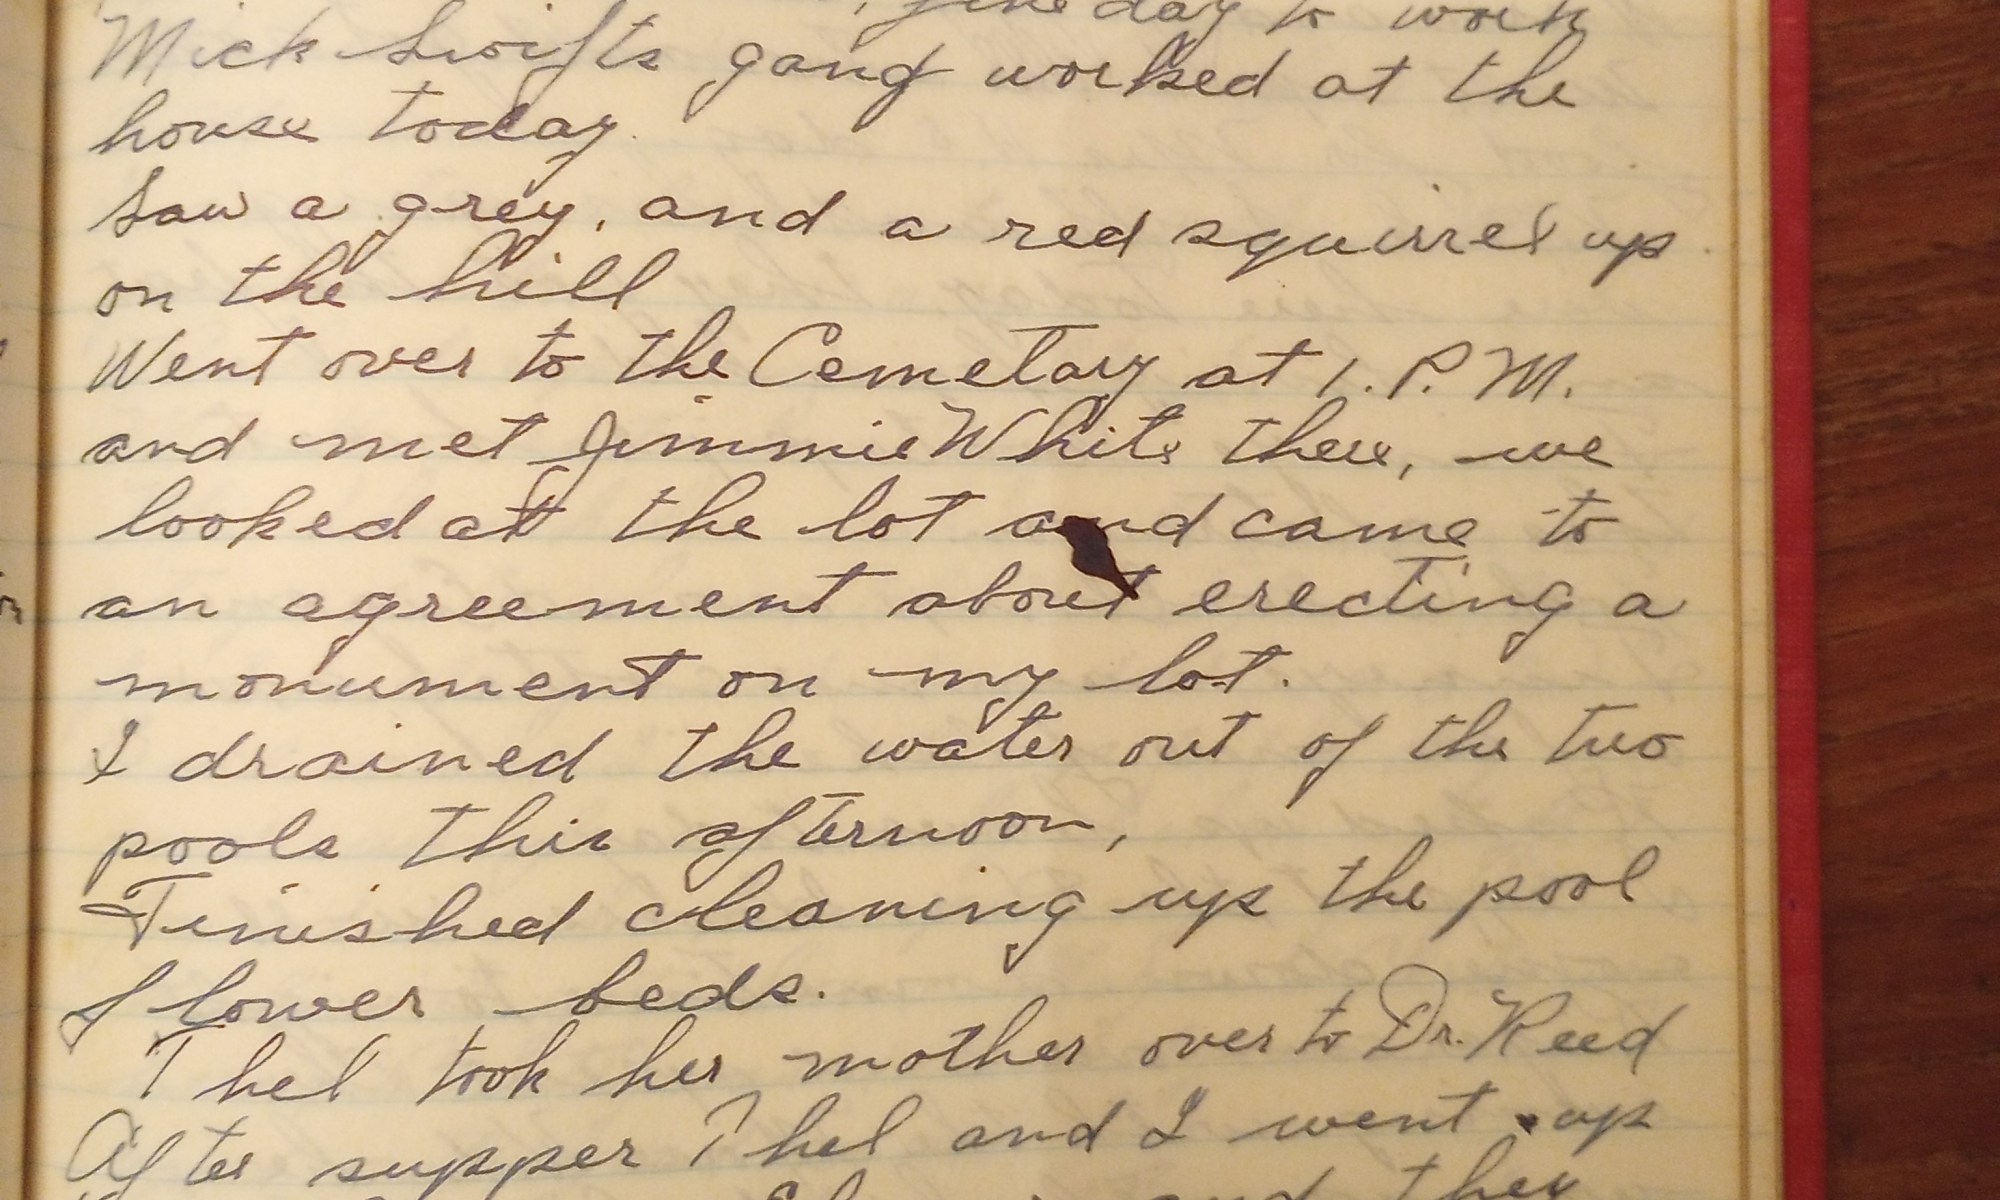 fine day to work
Mick Swifts gang worked at the
house today.
Saw a grey, and a red squirrel up
on the hill
Went over to the Cemetary at 1. P. M.
and met Jimmie White there, we
looked at the lot and came to
an agreement about erecting a
monument on my lot.
I drained the water out of the two
pools this afternoon,
Finished cleaning up the pool
flower beds.
Thel took her mother over to Dr. Reed
After supper Thel and I went up
and they